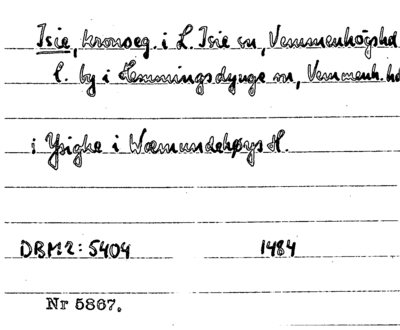 Isie, kronoeg. i L. Isie sn, Vemmenhögshd
l. by i Hemmingsdynge sn, Vemmenh. hd
i Ysighe i Wæmundehøys H.
DBM2: 5404 1484
Nr 5867.